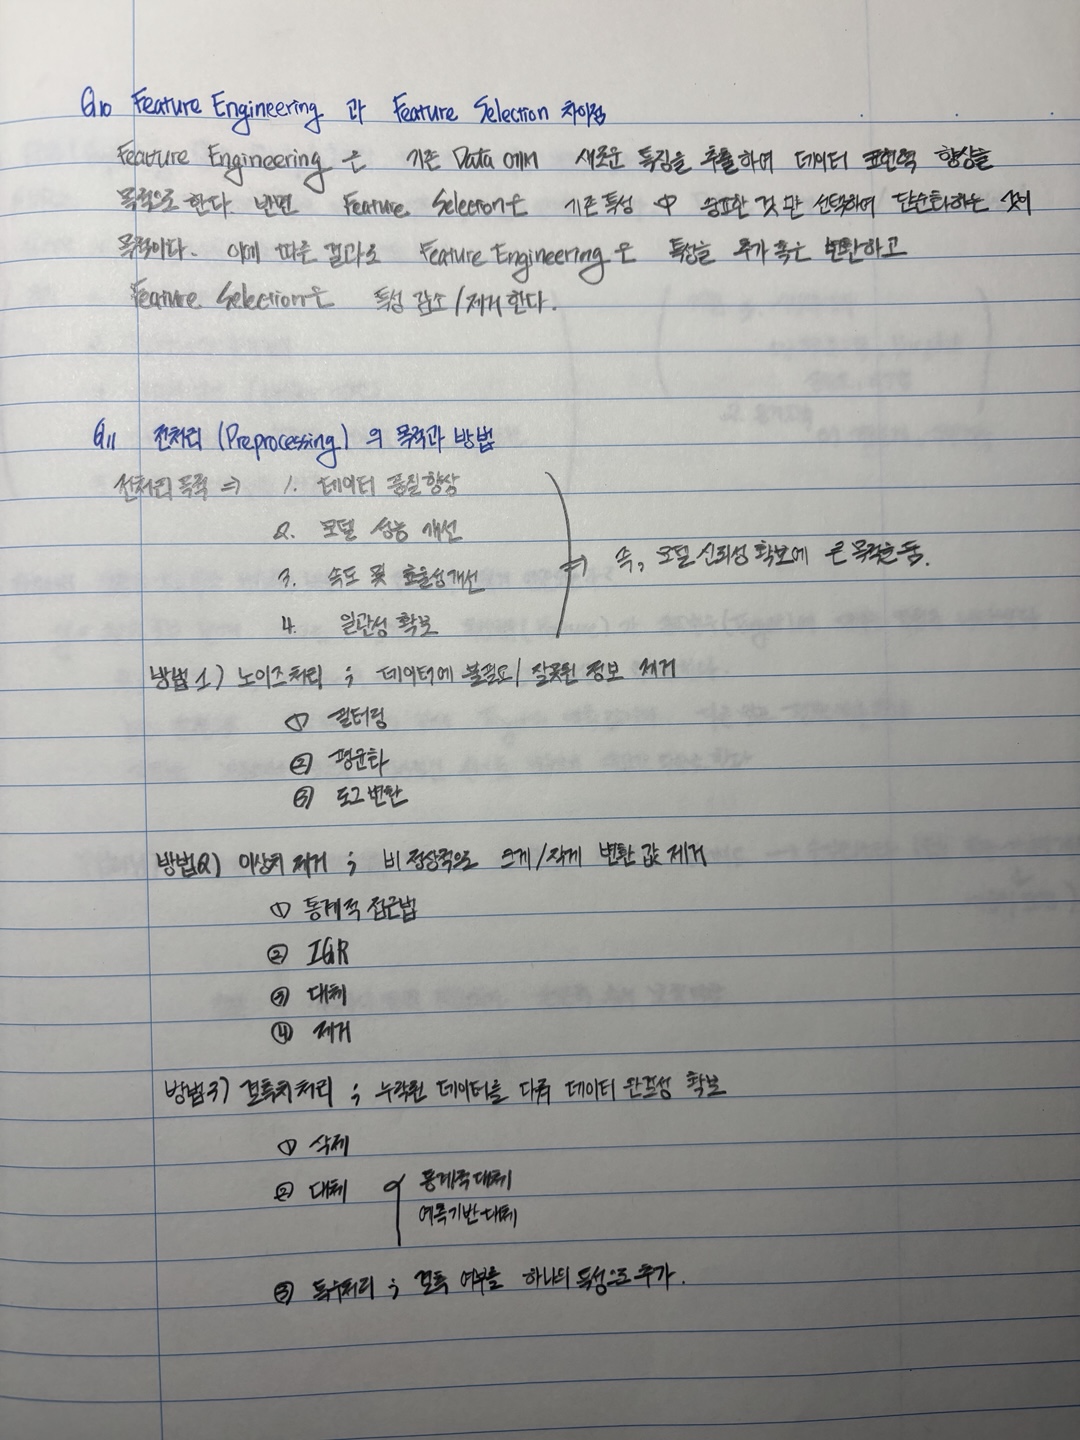 Q10 Feature Engineering 과 Feature Selection 차이점
Feature Engineering 은 기존 Data에서 새로운 특징을 추출하여 데이터 표현력 향상을
목적으로 한다 반면 Feature Selection은 기존 특성 中 중요한 것만 선택하여 단순화하는 것이
목적이다. 이에 따른 결과로 Feature Engineering은 특성을 추가 혹은 변환하고
Feature Selection은 특성 감소/제거한다.
Q11 전처리 (Preprocessing) 의 목적과 방법
전처리 목적 ⇒ 1. 데이터 품질향상
2. 모델 성능 개선
3. 속도 및 효율성개선
4. 일관성 확보
⇒ 즉, 모델 신뢰성 확보에 큰 목적을 둠.
방법 1) 노이즈처리 ; 데이터에 불필요/잘못된 정보 제거
① 필터링
② 평균화
③ 로그변환
방법2) 이상치 제거 ; 비정상적으로 크게/작게 변환 값 제거
① 통계적 접근법
② IQR
③ 대체
④ 제거
방법3) 결측치처리 ; 누락된 데이터를 다뤄 데이터 완결성 확보
① 삭제
② 대체 통계적대체
예측기반대체
③ 특수처리 ; 결측 여부를 하나의 특성으로 추가.